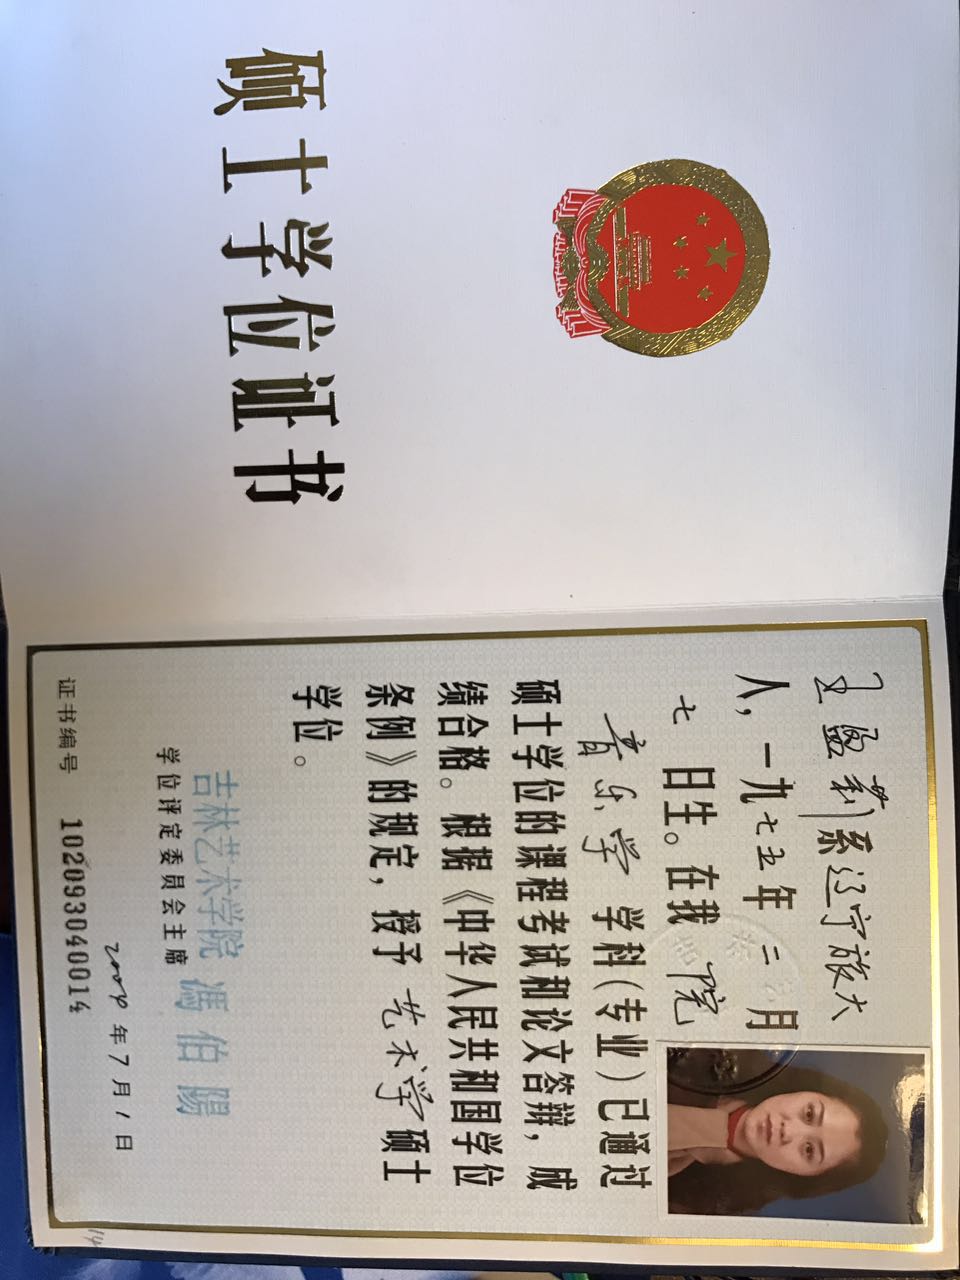 硕士学位证书
王盈莉系辽宁旅大
人,一九七五年二月
七日生。在我院
音乐学学科(专业)已通过
硕士学位的课程考试和论文答辩,成
绩合格。根据《中华人民共和国学位
条例》的规定,授予艺术学硕士
学位。
吉林艺术学院
学位评定委员会主席
馮伯陽
2004年7月1日
证书编号 1020930400014